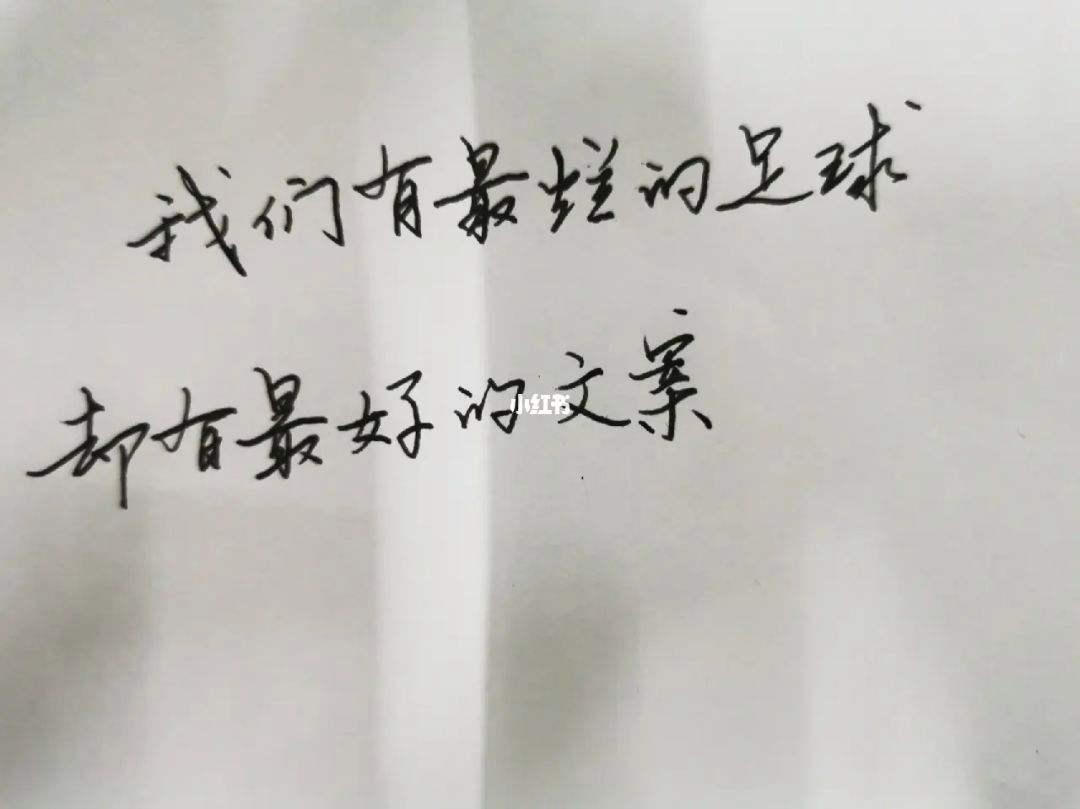 我们有最烂的足球
却有最好的文案
小红书